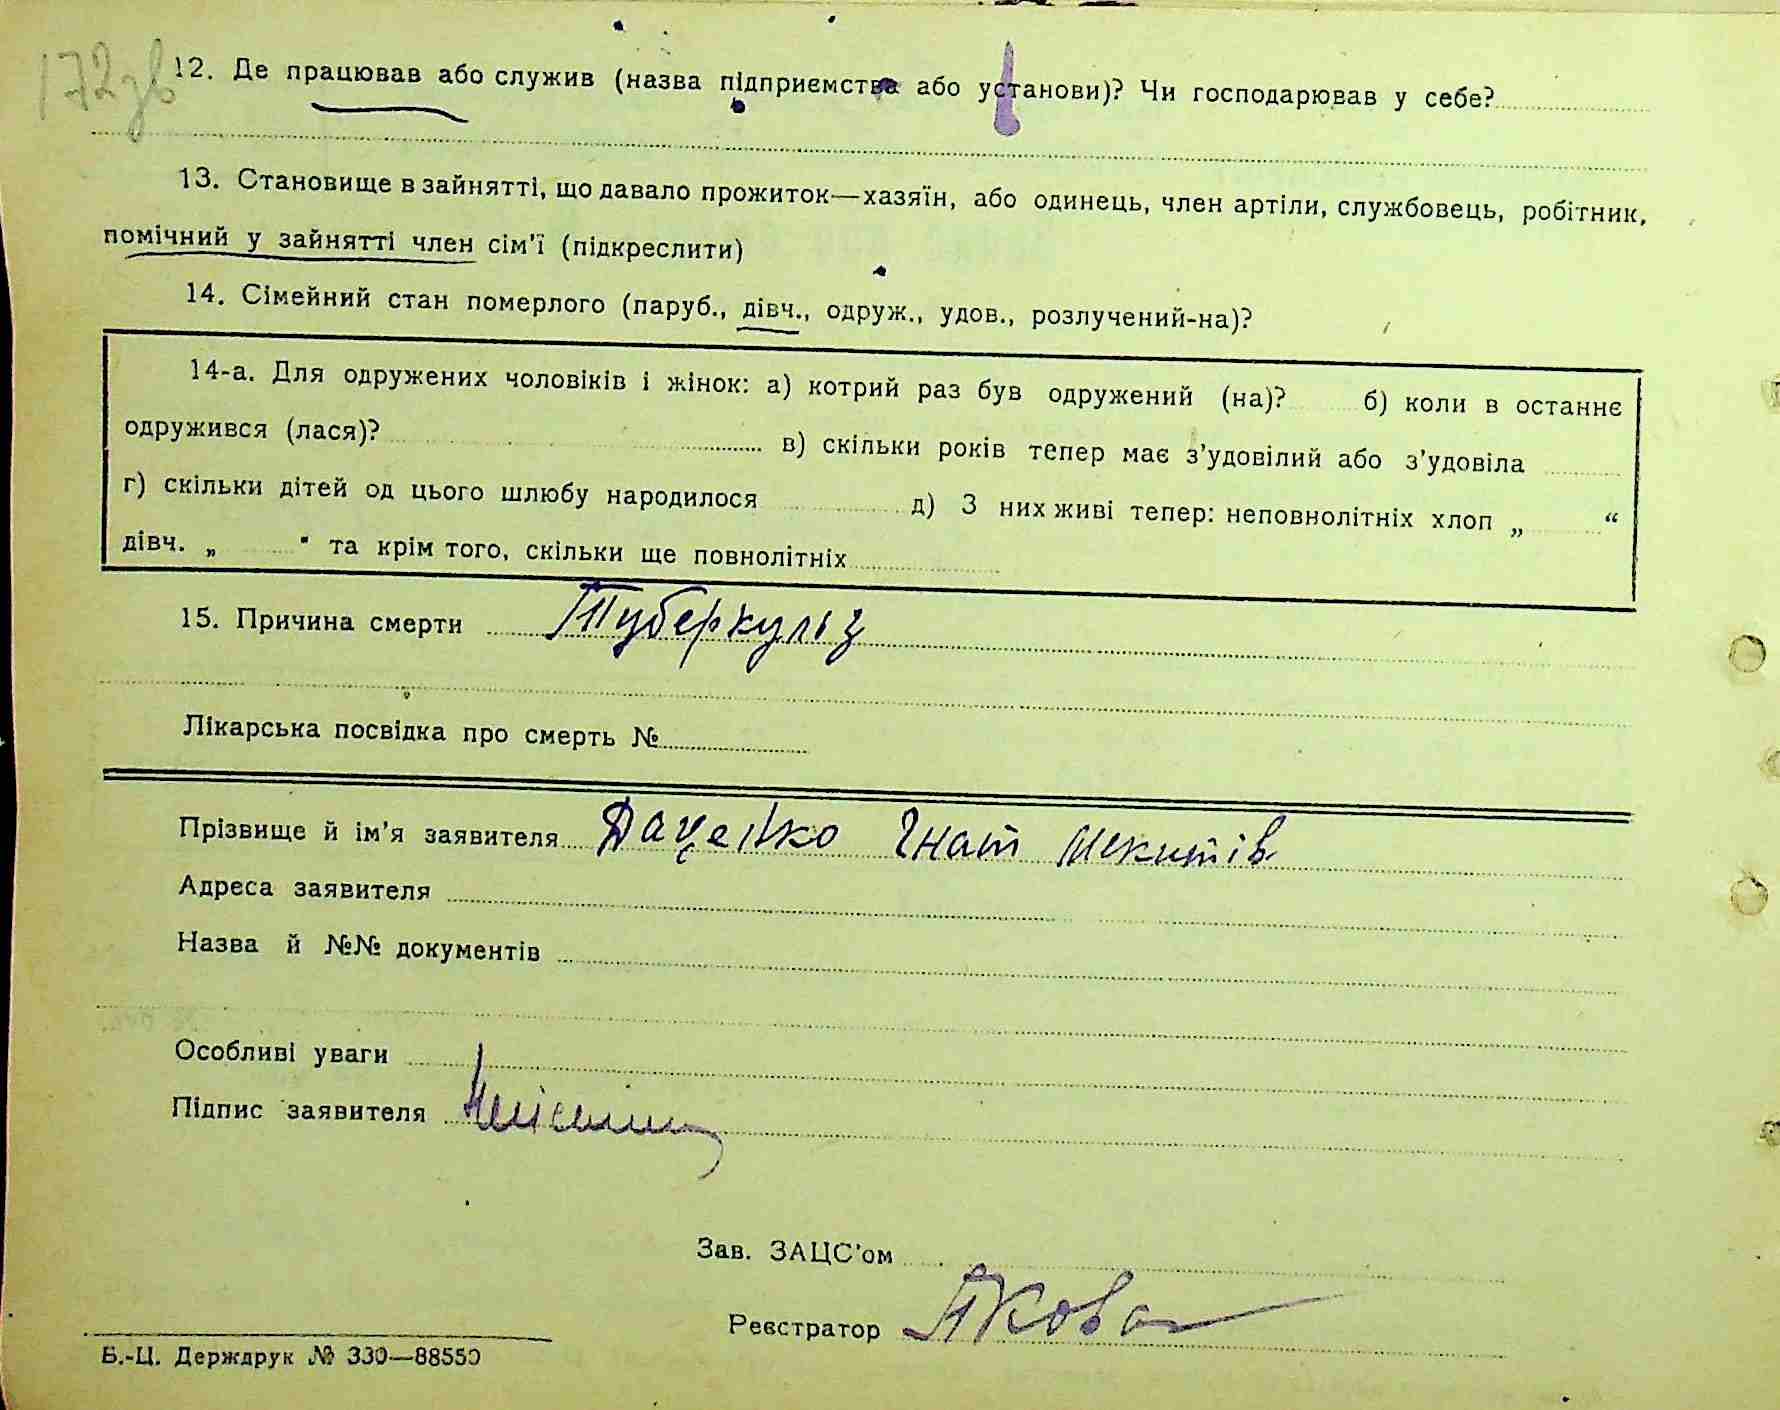 172зв
12. Де працював або служив (назва підприємства або установи)? Чи господарював у себе?
13. Становище в зайнятті, що давало прожиток—хазяїн, або одинець, член артіли, службовець, робітник,
помічний у зайнятті член сім'ї (підкреслити)
14. Сімейний стан померлого (паруб., дівч., одруж., удов., розлучений-на)?
14-а. Для одружених чоловіків і жінок: а) котрий раз був одружений (на)? б) коли в останнє
одружився (лася)? в) скільки років тепер має з'удовілий або з'удовіла
г) скільки дітей од цього шлюбу народилося д) З них живі тепер: неповнолітніх хлоп „ “
дівч. „ " та крім того, скільки ще повнолітніх
15. Причина смерти Туберкульз
Лікарська посвідка про смерть №
Прізвище й ім'я заявителя Даценко Гнат Мекитів
Адреса заявителя
Назва й №№ документів
Особливі уваги
Підпис заявителя
Зав. ЗАЦС'ом
Реєстратор Якова
Б.-Ц. Держдрук № 330—88550